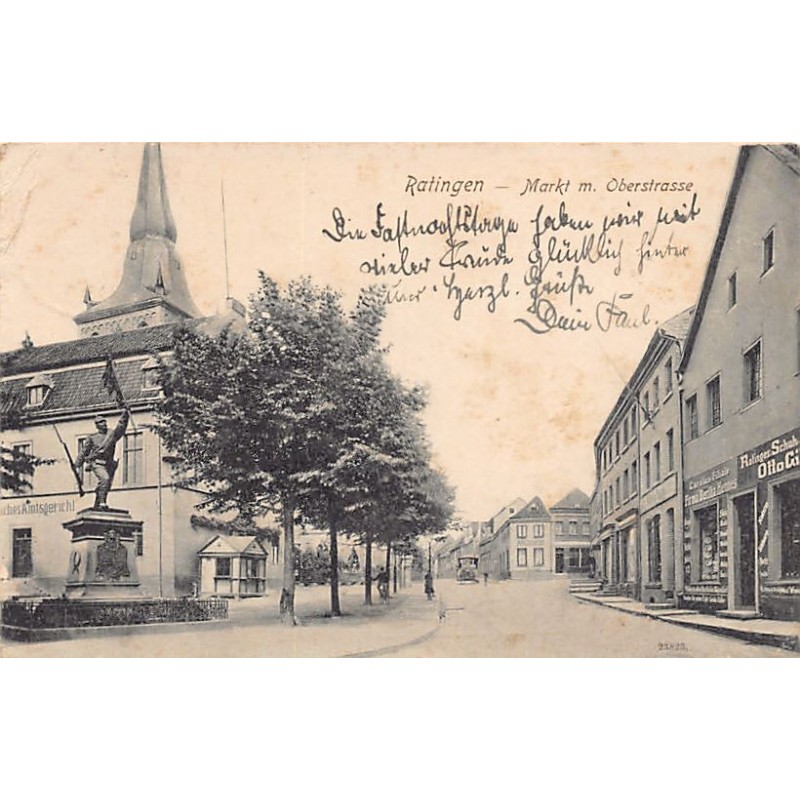 Ratingen — Markt m. Oberstrasse
Die Fastnachtstage haben wir mit
vieler Freude glücklich hinter
uns. Herzl. Grüße
Dein Paul.
ches Amtsgericht
Ratinger Schuh
Otto
23823.